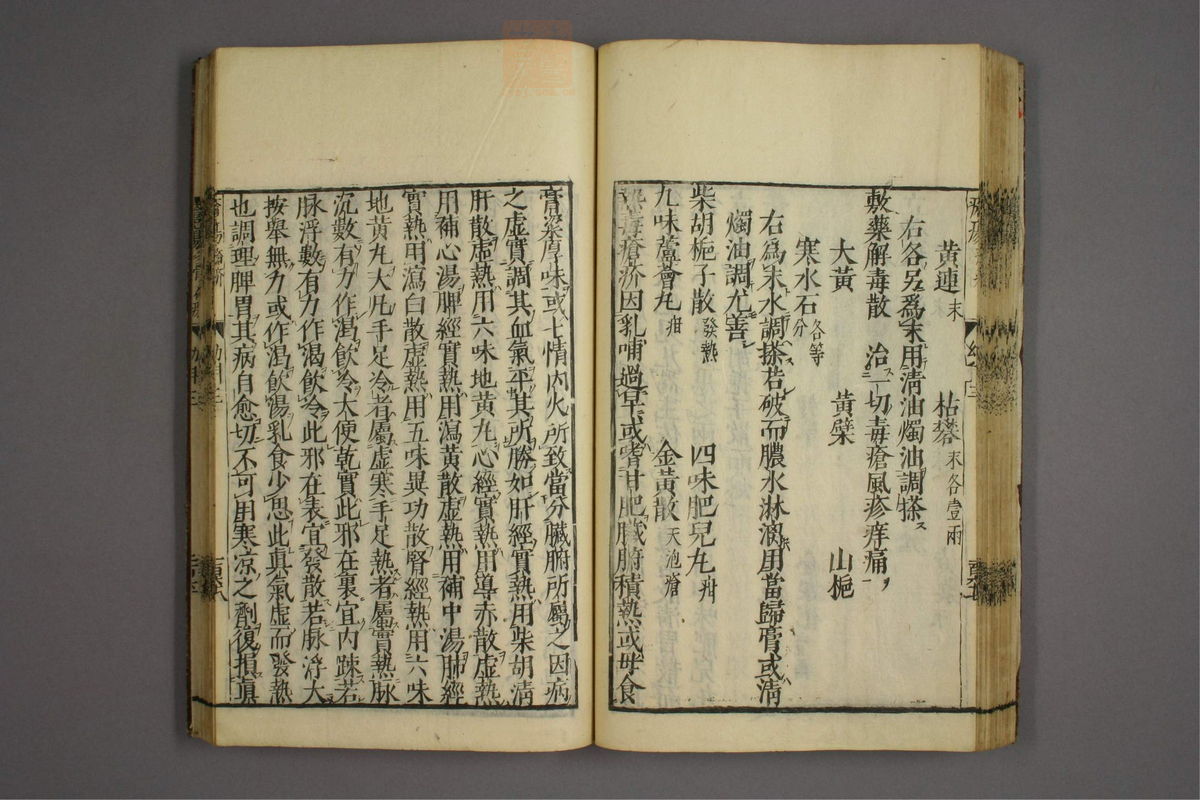 黄連末　枯礬末各壹兩
右各另爲末用清油燭油調搽
敷藥解毒散　治一切毒瘡風疹痒痛
大黄　黄檗　山梔
寒水石各等分
右爲末水調搽若破而膿水淋漓用當歸膏或清
燭油調尤善
柴胡梔子散發熱　四味肥兒丸疳
九味蘆薈丸疳　金黄散天泡瘡
熱毒瘡疥因乳哺過早或嗜甘肥臟腑積熱或母食
膏粱厚味或七情内火所致當分臟腑所屬之因病
之虚實調其血氣平其所勝如肝經實熱用柴胡清
肝散虚熱用六味地黄丸心經實熱用導赤散虚熱
用補心湯脾經實熱用瀉黄散虚熱用補中湯肺經
實熱用瀉白散虚熱用五味異功散腎經熱用六味
地黄丸大凡手足冷者屬虚寒手足熱者屬實熱脉
沉數有力作渴飲冷大便乾實此邪在裏宜内踈若
脉浮數有力作渴飲冷此邪在表宜發散若脉浮大
按舉無力或作渴飲湯乳食少思此真氣虚而發熱
也調理脾胃其病自愈切不可用寒凉之劑復損真